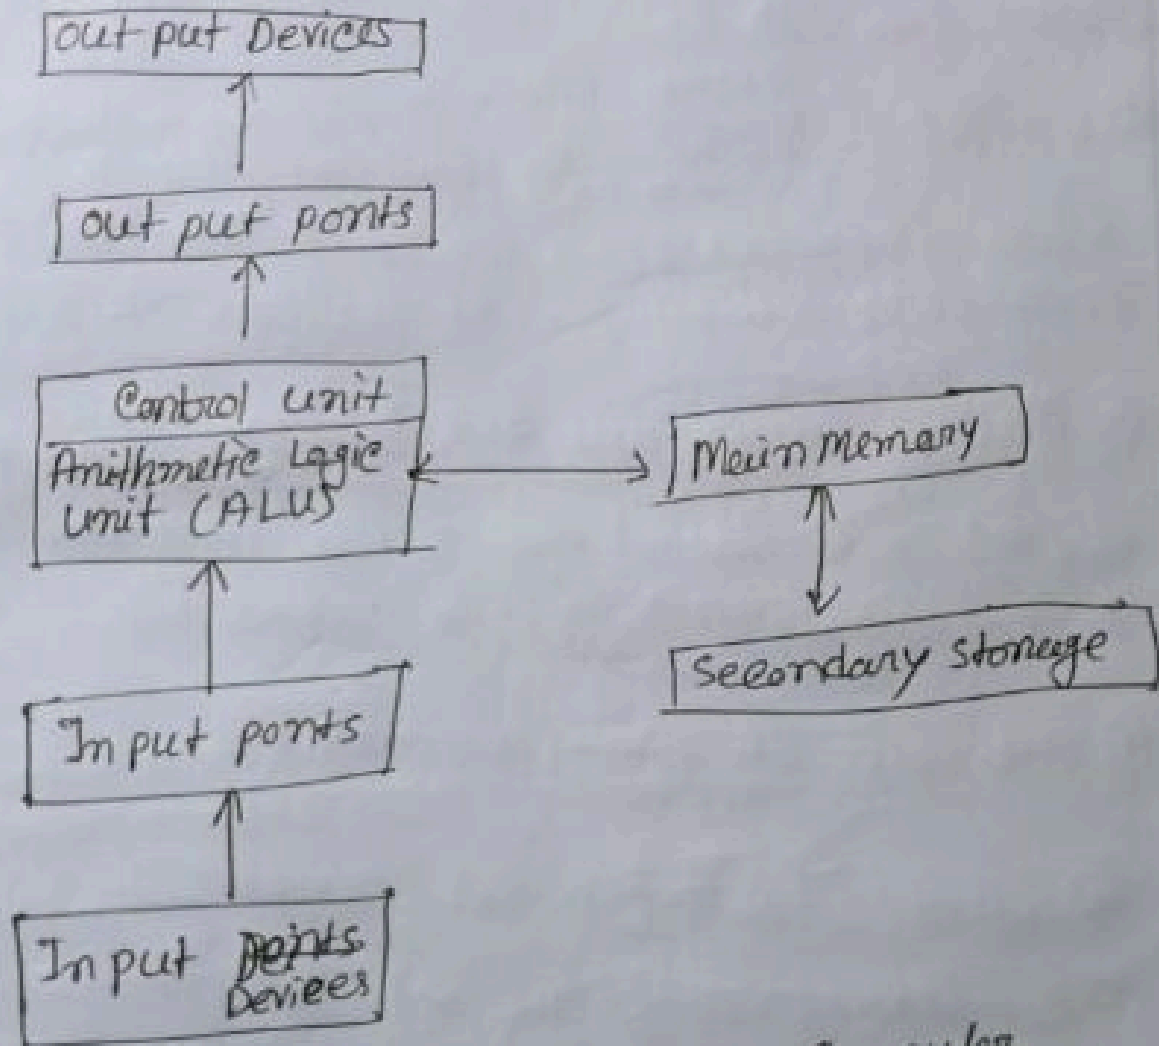 out put Devices
out put ports
Control unit
Arithmetic Logic
unit (ALU)
Main Memary
Secondary Storage
Input ports
Input
Devices